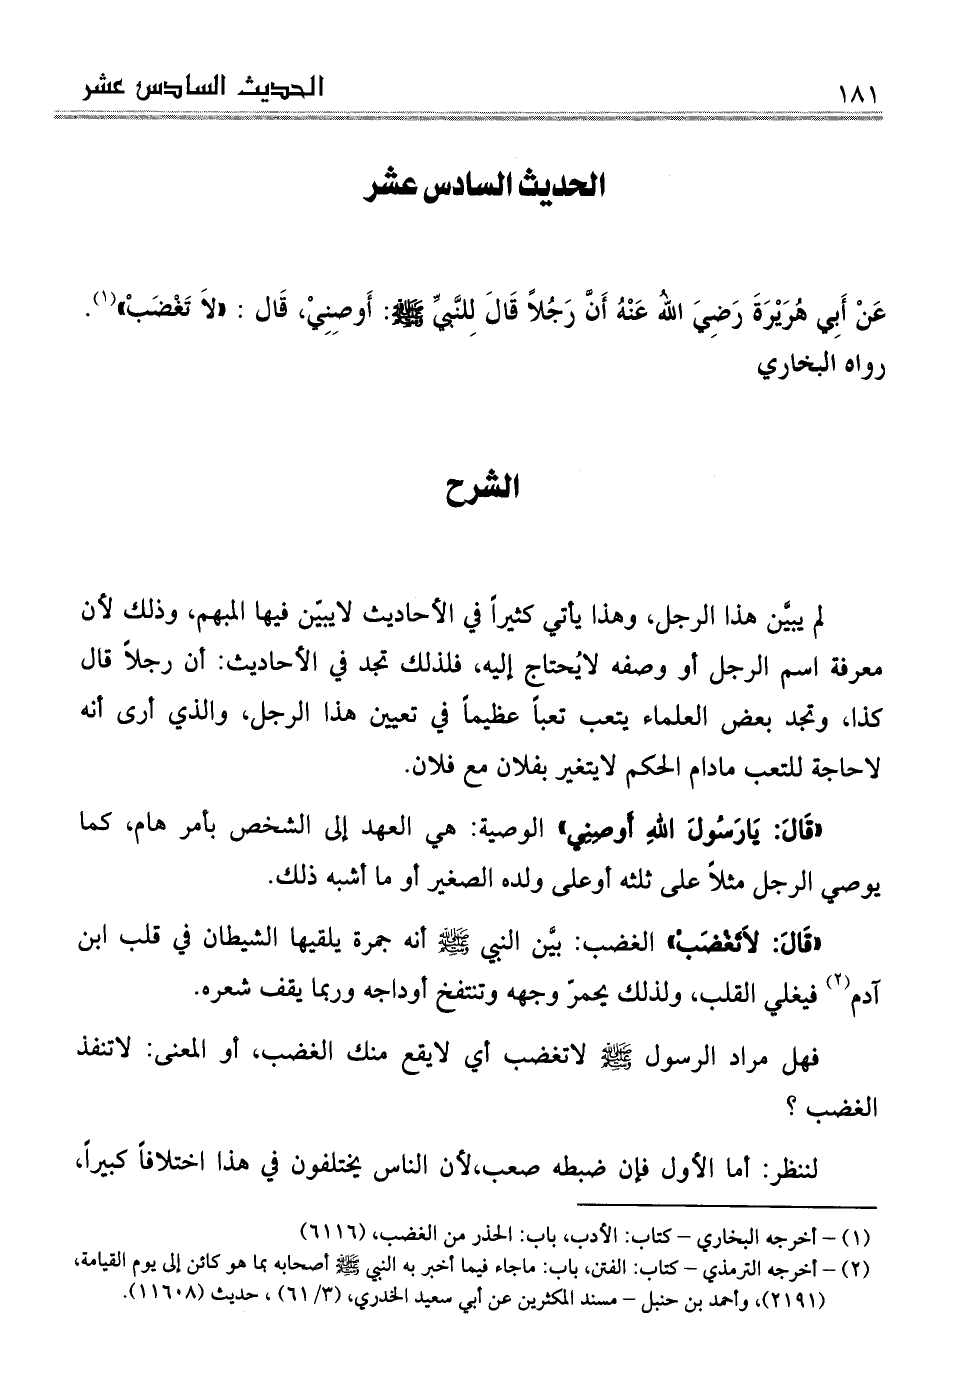 ١٨١ الحديث السادس عشر
الحديث السادس عشر
عَنْ أَبِي هُرَيْرَةَ رَضِيَ اللهُ عَنْهُ أَنَّ رَجُلاً قَالَ لِلنَّبِيِّ ﷺ: أَوصِنِيْ، قَال : «لاَ تَغْضَبْ»(١).
رواه البخاري
الشرح
لم يبيَّن هذا الرجل، وهذا يأتي كثيراً في الأحاديث لايبيّن فيها المبهم، وذلك لأن
معرفة اسم الرجل أو وصفه لايُحتاج إليه، فلذلك تجد في الأحاديث: أن رجلاً قال
كذا، وتجد بعض العلماء يتعب تعباً عظيماً في تعيين هذا الرجل، والذي أرى أنه
لاحاجة للتعب مادام الحكم لايتغير بفلان مع فلان.
«قَالَ: يَارَسُولَ اللهِ أَوصِنِي» الوصية: هي العهد إلى الشخص بأمر هام، كما
يوصي الرجل مثلاً على ثلثه أوعلى ولده الصغير أو ما أشبه ذلك.
«قَالَ: لاَتَغْضَبْ» الغضب: بيَّن النبي ﷺ أنه جمرة يلقيها الشيطان في قلب ابن
آدم(٢) فيغلي القلب، ولذلك يحمرّ وجهه وتنتفخ أوداجه وربما يقف شعره.
فهل مراد الرسول ﷺ لاتغضب أي لايقع منك الغضب، أو المعنى: لاتنفذ
الغضب ؟
لننظر: أما الأول فإن ضبطه صعب،لأن الناس يختلفون في هذا اختلافاً كبيراً،
(١) – أخرجه البخاري – كتاب: الأدب، باب: الحذر من الغضب، (٦١١٦)
(٢) – أخرجه الترمذي – كتاب: الفتن، باب: ماجاء فيما أخبر به النبي ﷺ أصحابه بما هو كائن إلى يوم القيامة،
(٢١٩١)، وأحمد بن حنبل – مسند المكثرين عن أبي سعيد الخدري، (٣/ ٦١) ، حديث (١١٦٠٨).